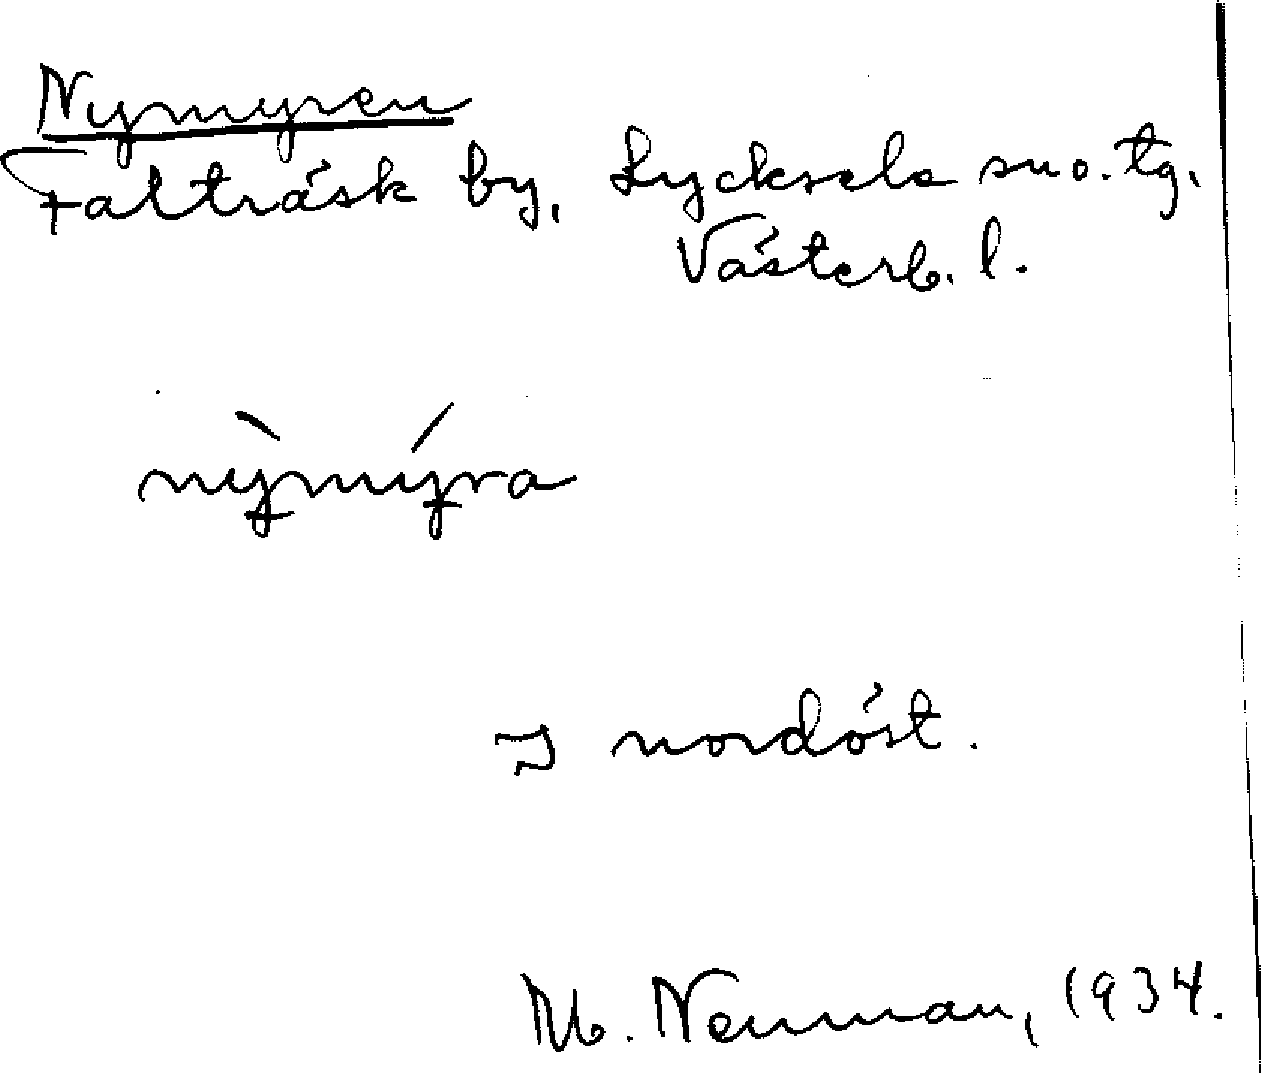 Nymyren
Falträsk by, Lycksele sn o. tg.
Västerb. l.
nỳmýra
I nordöst.
M. Neuman, 1934.